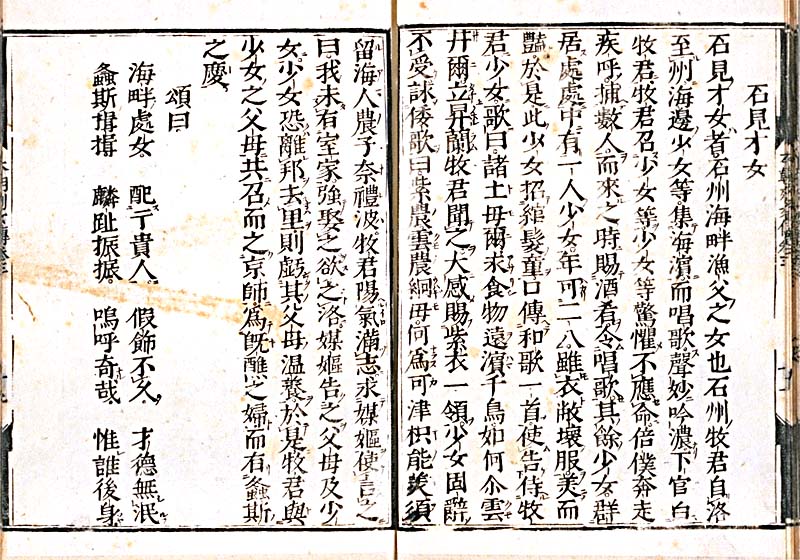 石見才女
石見才女者石州海畔漁父之女也石州牧君自洛
至州海邊少女等集海濱而唱歌聲妙吟濃下官白
牧君牧君召少女等少女等驚懼不應命倍僕奔走
疾呼捕數人而來之時賜酒肴令唱歌其餘少女群
居處處中有一人少女年可二八雖衣敝壞服美而
豔於是此少女招綰髮童口傳和歌一首使告侍牧
君少女歌曰諸土毋爾求食物遠濱千鳥如何尒雲
井爾立昇蘭牧君聞之大感賜紫衣一領少女固辭
不受詠倭歌曰紫農雲農綱毋何爲可津枳能美須
留海人農子奈禮波牧君陽氣滿志求媒嫗使言之
曰我未有室家強娶之欲之洛媒嫗告之父母及少
女少女恐離邦去里則戲其父母溫養於是牧君與
少女之父母共召而之京師爲旣醮之婦而有螽斯
之慶
頌曰
海畔處女 配亍貴人 假飾不久 才德無泯
螽斯揖揖 麟趾振振 嗚呼奇哉 惟誰後身